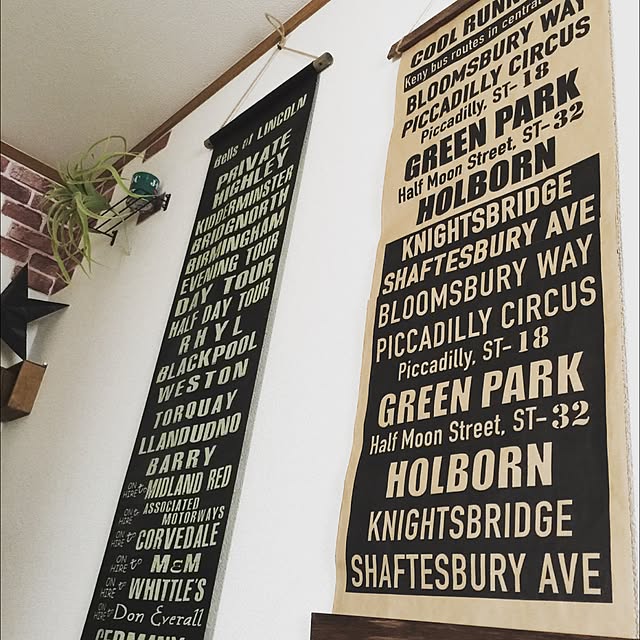 Bells of LINCOLN
PRIVATE
HIGHLEY
KIDDERMINSTER
BRIDGNORTH
BIRMINGHAM
EVENING TOUR
DAY TOUR
HALF DAY TOUR
RHYL
BLACKPOOL
WESTON
TORQUAY
LLANDUDNO
BARRY
ON HIRE to MIDLAND RED
ON HIRE to ASSOCIATED MOTORWAYS
ON HIRE to CORVEDALE
ON HIRE to M&M
ON HIRE to WHITTLE'S
ON HIRE to Don Everall
GERMANY
COOL RUNN
Keny bus routes in central
BLOOMSBURY WAY
PICCADILLY CIRCUS
Piccadilly, ST-18
GREEN PARK
Half Moon Street, ST-32
HOLBORN
KNIGHTSBRIDGE
SHAFTESBURY AVE
BLOOMSBURY WAY
PICCADILLY CIRCUS
Piccadilly, ST-18
GREEN PARK
Half Moon Street, ST-32
HOLBORN
KNIGHTSBRIDGE
SHAFTESBURY AVE